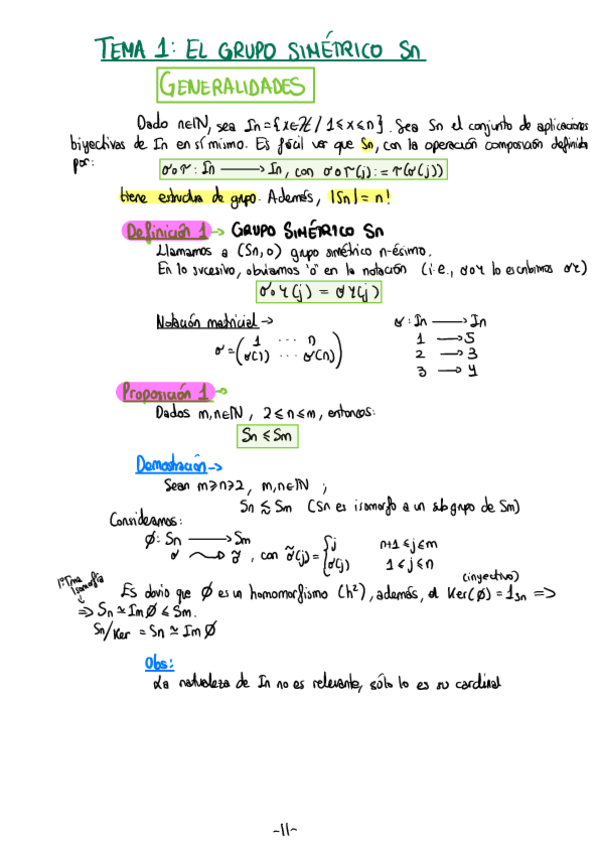 TEMA 1: EL GRUPO SIMÉTRICO Sn
GENERALIDADES
Dado n∈ℕ, sea In={x∈ℤ / 1≤x≤n}. Sea Sn el conjunto de aplicaciones
biyectivas de In en sí mismo. Es fácil ver que Sn, con la operación composición definida
por:
σ∘τ: In ⟶ In, con σ∘τ(j):=τ(σ(j))
tiene estructura de grupo. Además, |Sn|=n!
Definición 1 → GRUPO SIMÉTRICO Sn
Llamamos a (Sn,∘) grupo simétrico n-ésimo.
En lo sucesivo, obviamos "∘" en la notación (i.e., σ∘τ lo escribimos στ)
σ∘τ(j) = στ(j)
Notación matricial →
σ = (1 ··· n
σ(1) ··· σ(n))
σ: In ⟶ In
1 ⟶ 5
2 ⟶ 3
3 ⟶ 4
Proposición 1 →
Dados m,n∈ℕ, 2≤n≤m, entonces:
Sn ≤ Sm
Demostración →
Sean m≥n≥2, m,n∈ℕ ;
Sn ≲ Sm (Sn es isomorfo a un subgrupo de Sm)
Consideramos:
ϕ: Sn ⟶ Sm
σ ⟿ σ̃, con σ̃(j)={j n+1≤j≤m
σ(j) 1≤j≤n
1º Tma isomorfía
(inyectivo)
Es obvio que ϕ es un homomorfismo (h²), además, el Ker(ϕ)=1Sn =>
=> Sn ≃ Imϕ ≤ Sm.
Sn/Ker = Sn ≃ Imϕ
Obs:
La naturaleza de In no es relevante, sólo lo es su cardinal
-11-